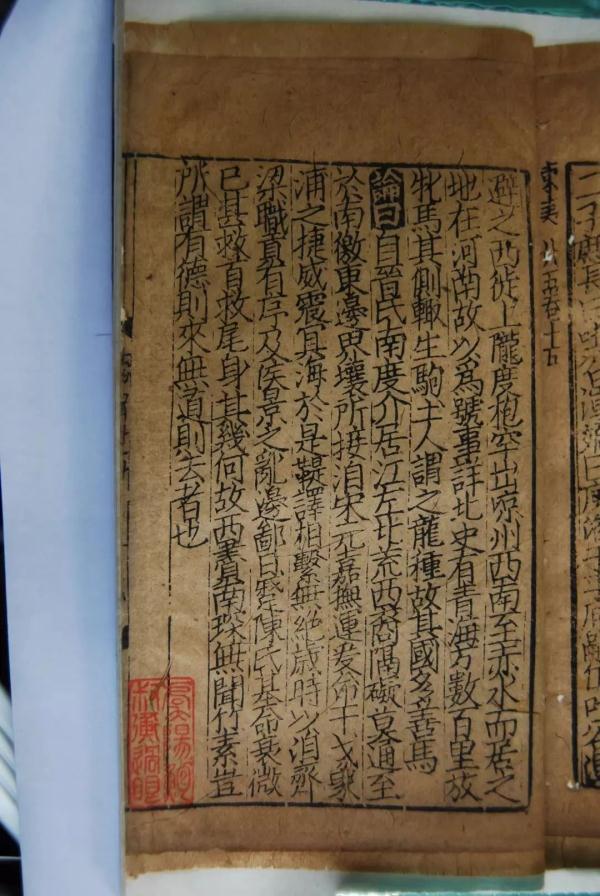 二子庶長曰吐谷渾嫡曰廆洛干卒廆嗣位吐谷渾
避之西徙上隴度枹罕出凉州西南至赤水而居之
地在河南故以爲號事詳北史有青海方數百里放
牝馬其側輙生駒土人謂之龍種故其國多善馬
論曰自晉氏南度介居江左北荒西裔隔礙莫通至
於南徼東邊界壤所接洎宋元嘉撫運爰命干戈象
浦之捷威震冥海於是鞮譯相繫無絕歲時以洎齊
梁職貢有序及侯景之亂邊鄙日蹙陳氏基命衰微
已甚救首救尾身其幾何故西賮南琛無聞竹素豈
所謂有德則來無道則去者也